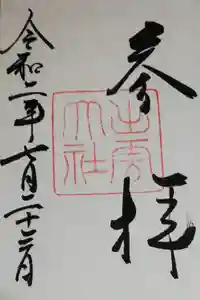 参拝
出雲
大社
令和二年七月二十三日